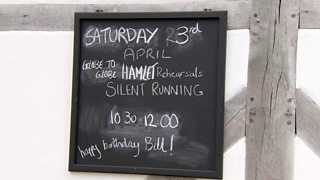 SATURDAY 23rd
APRIL
GLOBE TO
GLOBE HAMLET Rehearsals
SILENT RUNNING
10.30-12.00
happy birthday Bill!